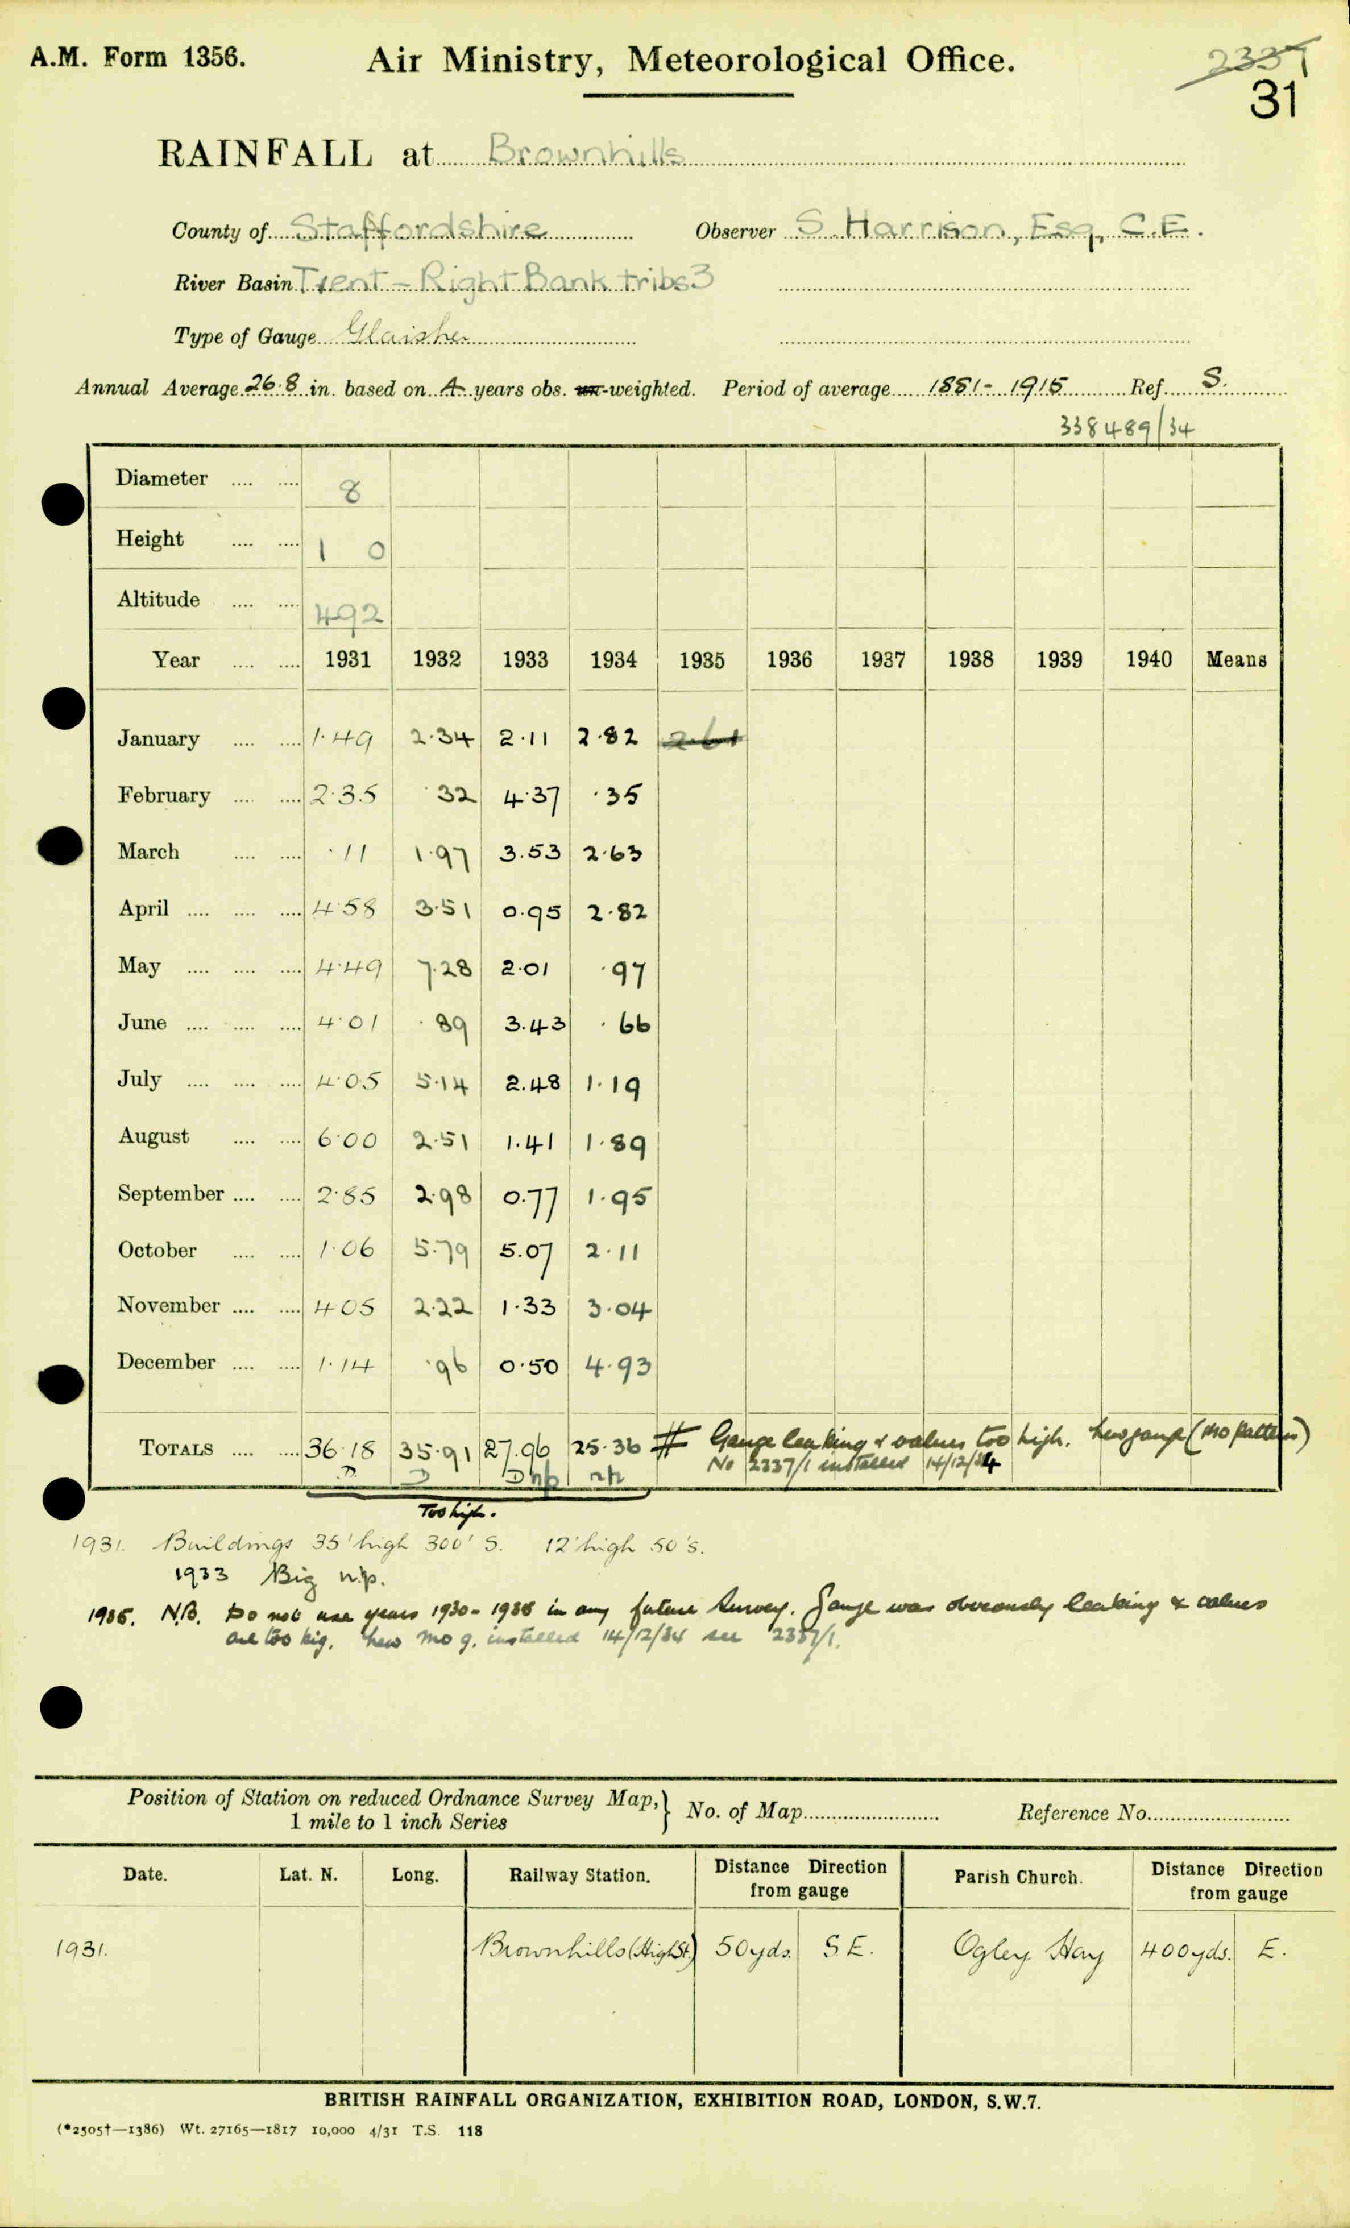 A.M. Form 1356.
Air Ministry, Meteorological Office.
2337
31
RAINFALL at Brownhills
County of Staffordshire Observer S. Harrison, Esq, C.E.
River Basin Trent - Right Bank tribs 3
Type of Gauge Glaisher
Annual Average 26.8 in. based on 4 years obs. un-weighted. Period of average 1881-1915 Ref. S.
338489/34
Diameter .... .... 8
Height .... .... 1 0
Altitude .... .... 492
Year .... .... 1931 1932 1933 1934 1935 1936 1937 1938 1939 1940 Means
January .... .... 1.49 2.34 2.11 2.82 2.61
February .... .... 2.35 .32 4.37 .35
March .... .... .11 1.97 3.53 2.63
April .... .... .... 4.58 3.51 0.95 2.82
May .... .... .... 4.49 7.28 2.01 .97
June .... .... .... 4.01 .89 3.43 .66
July .... .... .... 4.05 5.14 2.48 1.19
August .... .... 6.00 2.51 1.41 1.89
September .... .... 2.85 2.98 0.77 1.95
October .... .... 1.06 5.79 5.07 2.11
November .... .... 4.05 2.22 1.33 3.04
December .... .... 1.14 .96 0.50 4.93
TOTALS .... .... 36.18 35.91 27.96 25.36 # Gauge leaking & values too high. New gauge (MO Pattern)
D D D np np No 2337/1 installed 14/12/34
Too high.
1931. Buildings 35' high 300' S. 12' high 50' S.
1933 Big n.p.
1935. N.B. Do not use years 1930-1935 in any future Survey. Gauge was obviously leaking & values
are too big. New MO g. installed 14/12/34 see 2337/1.
Position of Station on reduced Ordnance Survey Map, } No. of Map Reference No.
1 mile to 1 inch Series
Date. Lat. N. Long. Railway Station. Distance Direction from gauge Parish Church. Distance Direction from gauge
1931. Brownhills (High St) 50 yds. S E. Ogley Hay 400 yds. E.
BRITISH RAINFALL ORGANIZATION, EXHIBITION ROAD, LONDON, S.W.7.
(*2505†—1386) Wt. 27165—1817 10,000 4/31 T.S. 118